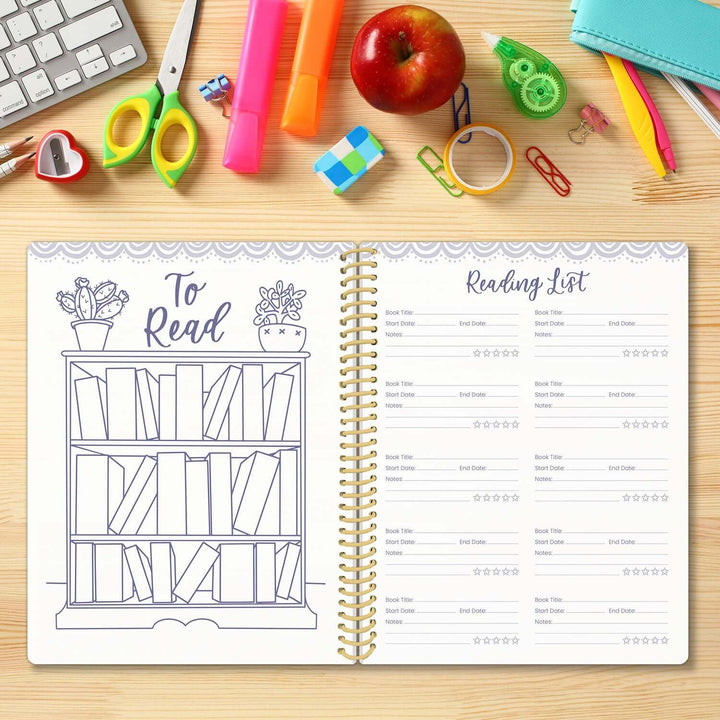 To
Read
Reading List
Book Title:
Start Date: End Date:
Notes:
Book Title:
Start Date: End Date:
Notes:
Book Title:
Start Date: End Date:
Notes:
Book Title:
Start Date: End Date:
Notes:
Book Title:
Start Date: End Date:
Notes:
Book Title:
Start Date: End Date:
Notes:
Book Title:
Start Date: End Date:
Notes:
Book Title:
Start Date: End Date:
Notes:
Book Title:
Start Date: End Date:
Notes:
Book Title:
Start Date: End Date:
Notes: